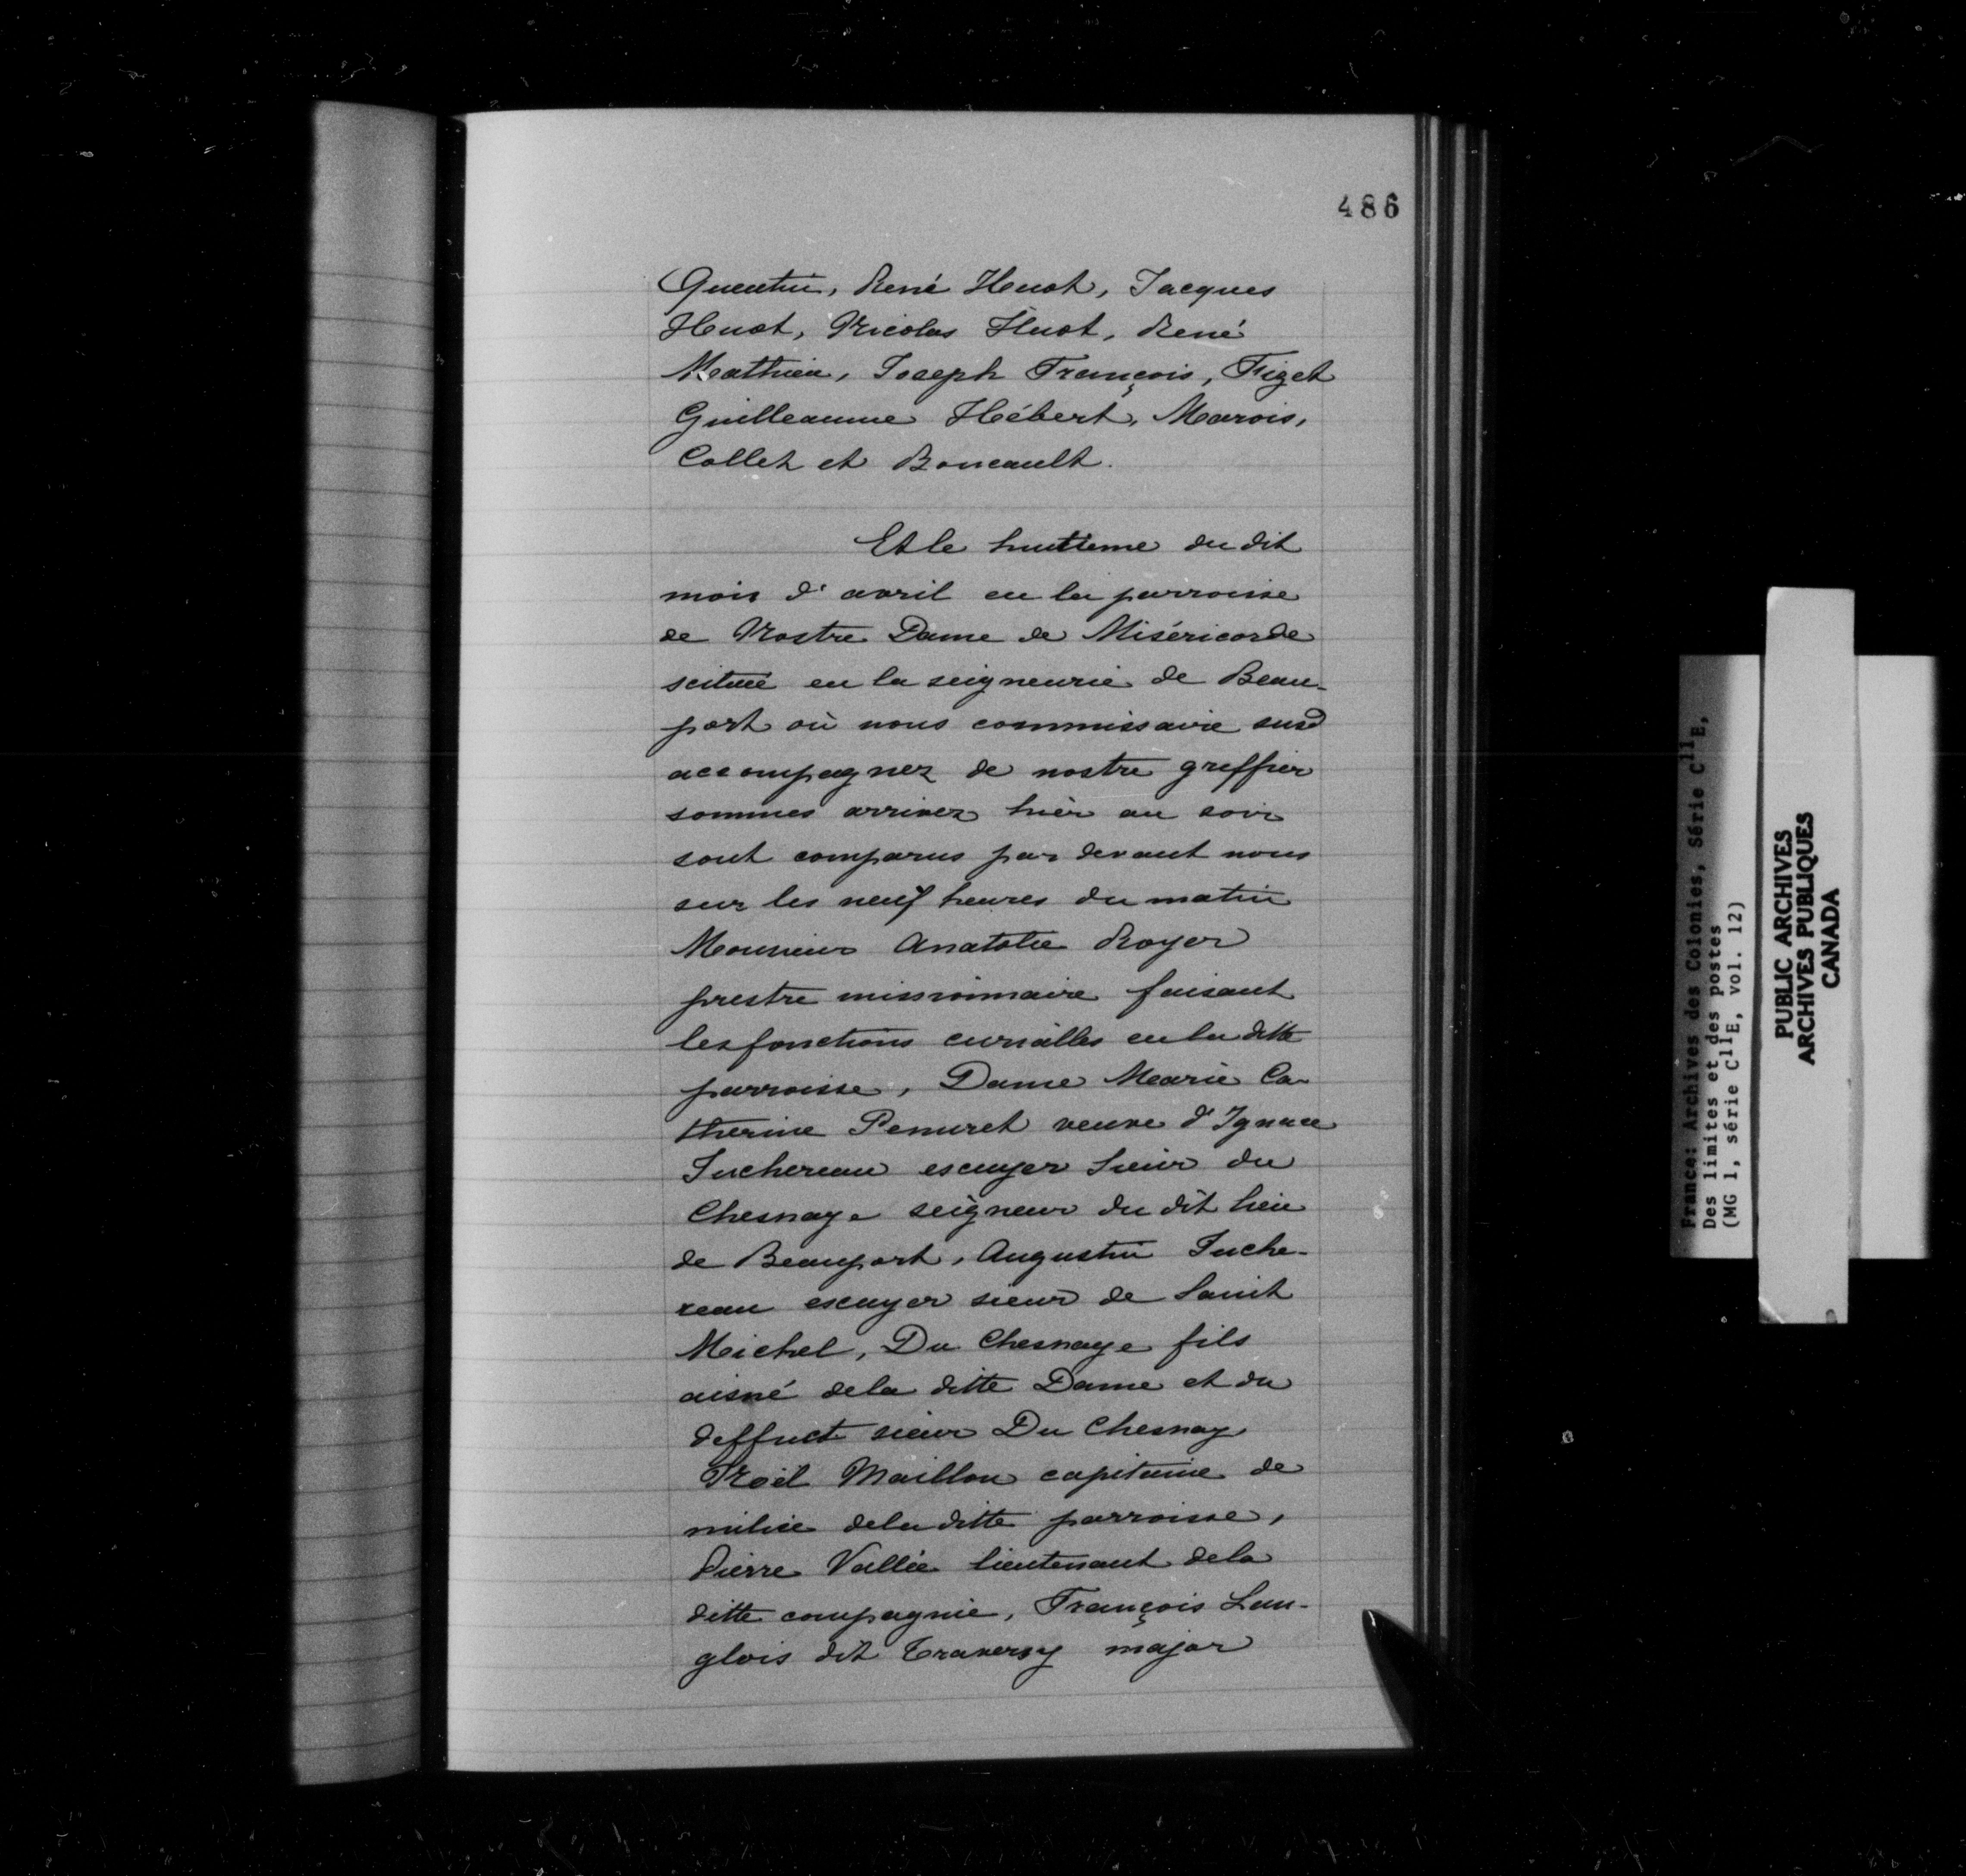 486
Quentin, René Huot, Jacques
Huot, Nicolas Huot, René
Mathieu, Joseph François, Fizet
Guilleaume Hébert, Marois,
Collet et Boucault.
Et le huitieme du dit
mois d'avril en la parroisse
de Nostre Dame de Miséricorde
scitué en la seigneurie de Beau-
port où nous commissaire susd
accompagnez de nostre greffier
sommes arrivez hièr au soir
sont comparus par devant nous
sur les neuf heures du matin
Monsieur Anatolie Royer
prestre missionnaire faisant
les fonctions curialles en la ditte
parroisse, Dame Marie Ca-
therine Penuret veuve d'Ignace
Juchereau escuyer sieur du
Chesnaye seigneur du dit lieu
de Beauport, Augustin Juche-
reau escuyer sieur de Saint
Michel, Du Chesnaye fils
aisné dela ditte Dame et du
deffuct sieur Du Chesnay
Noël Maillou capitaine de
milice dela ditte parroisse,
Pierre Vallée lieutenant dela
ditte compagnie, François Lan-
glois dit Traversy major
France: Archives des Colonies, Série C11E,
Des limites et des postes
(MG 1, série C11E, vol. 12)
PUBLIC ARCHIVES
ARCHIVES PUBLIQUES
CANADA